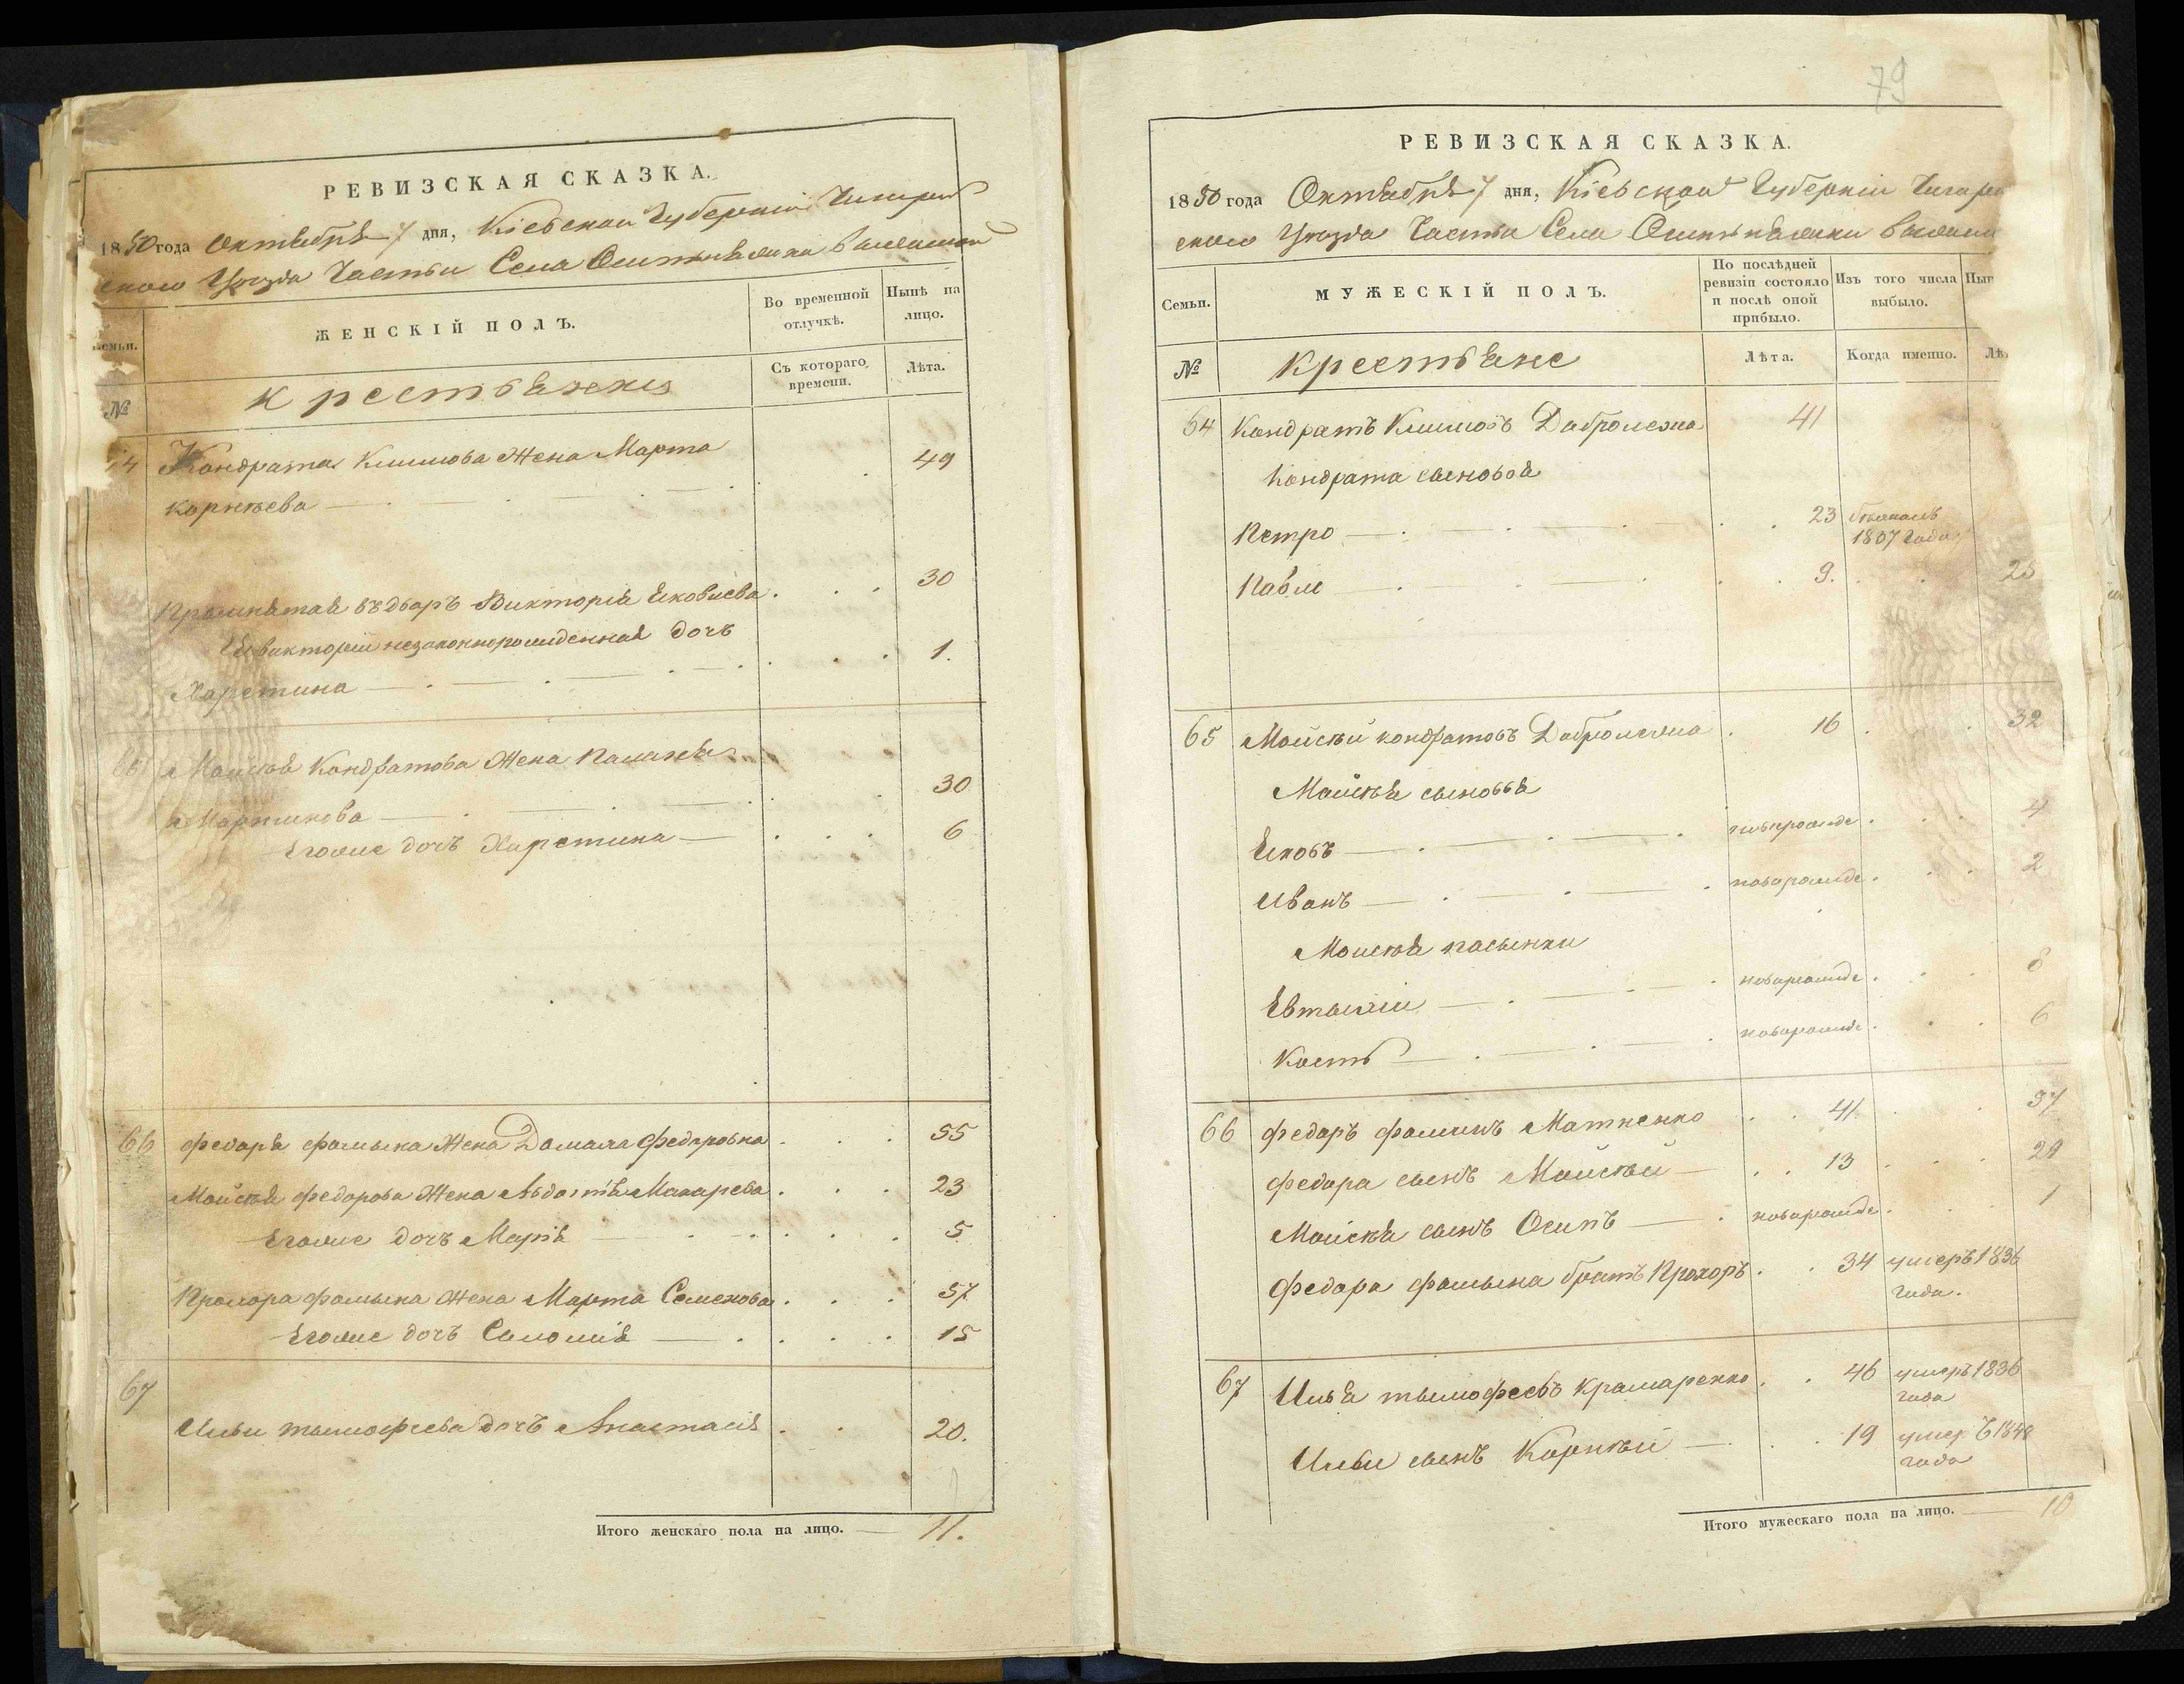 РЕВИЗСКАЯ СКАЗКА.
1850 года Октября 7 дня, Кіевской Губерніи Чигирин
ского Уезда Части Села Оситняжки
ЖЕНСКІЙ ПОЛЪ.
Во временной отлучкѣ.
Нынѣ на лицо.
семьи.
№
Крестьянкия
Съ котораго времени.
Лѣта.
Кондрата Климова Жена Марта
Корнѣева 49
Принятая въ дворъ Викторія Яковлева 30
Викторіи незаконнорожденная дочъ
Харетина 1.
Мойсѣя Кондратова Жена
Мартинова 30
Егоже дочъ Харетина 6
66 Федора Фомына Жена Федоровна 55
Мойсѣя Федорова Жена Авдотія Макарева 23
Егоже дочъ Марія 5
Прохора Фомына Жена Марта Семенова 57
Егоже дочъ Соломія 15
67
Ильи тымофеева дочъ Анастасія 20.
Итого женскаго пола на лицо. 11.
79
РЕВИЗСКАЯ СКАЗКА.
1850 года Октября 7 дня, Кіевской Губерніи Чигирин
ского Уезда Части Села Оситняжки
Семьи.
МУЖЕСКІЙ ПОЛЪ.
По послѣдней ревизіи состояло и послѣ оной прибыло.
Изъ того числа выбыло.
Нын
№
Крестьяне
Лѣта.
Когда именно.
Лѣ
64 Кондратъ Климовъ Доброležа 41
Кондрата сыновья
Петро 23
1807 года
Павло 9. 25
65 Мойсѣй Кондратовъ 16 32
Мойсѣя сыновья
Яковъ новорожде 4
Иванъ новорожде 2
Мойсѣя пасынки
Евтыхій новорожде 8
Кость новорожде 6
66 Федоръ Фоминъ Матненко 41 57
Федора сынъ Мойсѣй 13 29
Мойсѣя сынъ Осипъ новорожде 1
Федора Фомына братъ Прохоръ 34 умеръ 1836
года.
67 Илья тымофеевъ Крамаренко 46 умеръ 1836
года
Ильи сынъ Корнѣй 19 умеръ 1848
года
Итого мужескаго пола на лицо. 10